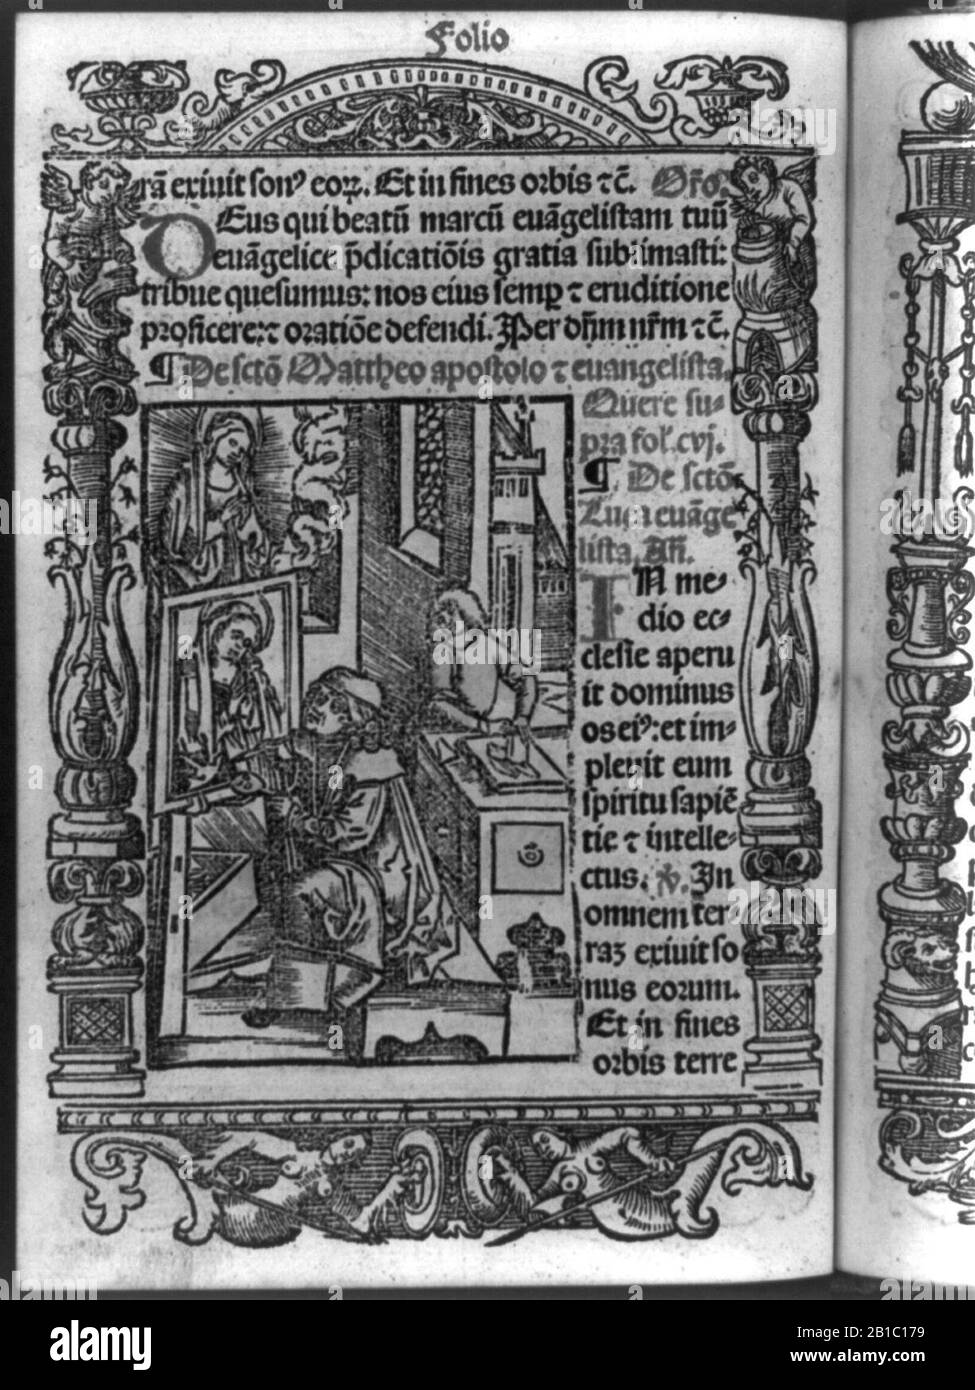 Folio
rā exiuit son⁹ eoꝝ. Et in fines orbis ⁊c̄. Orō.
DEus qui beatū marcū euāgelistam tuū
euāgelice p̄dicatiōis gratia sublimasti:
tribue quesumus: nos eius semp ⁊ eruditione
proficere: ⁊ oratiōe defendi. Per dñm nr̄m ⁊c̄.
¶ De sctō Mattheo apostolo ⁊ euangelista.
Quere su-
pra fol. cvj.
¶ De sctō
Luca euāge
lista. Añ.
IN me-
dio ec-
clesie aperu
it dominus
os ei⁹: et im-
pleuit eum
spiritu sapiē
tie ⁊ intelle-
ctus. ℣. In
omnem ter-
raꝫ exiuit so
nus eorum.
Et in fines
orbis terre
alamy
Image ID: 2B1C179
www.alamy.com